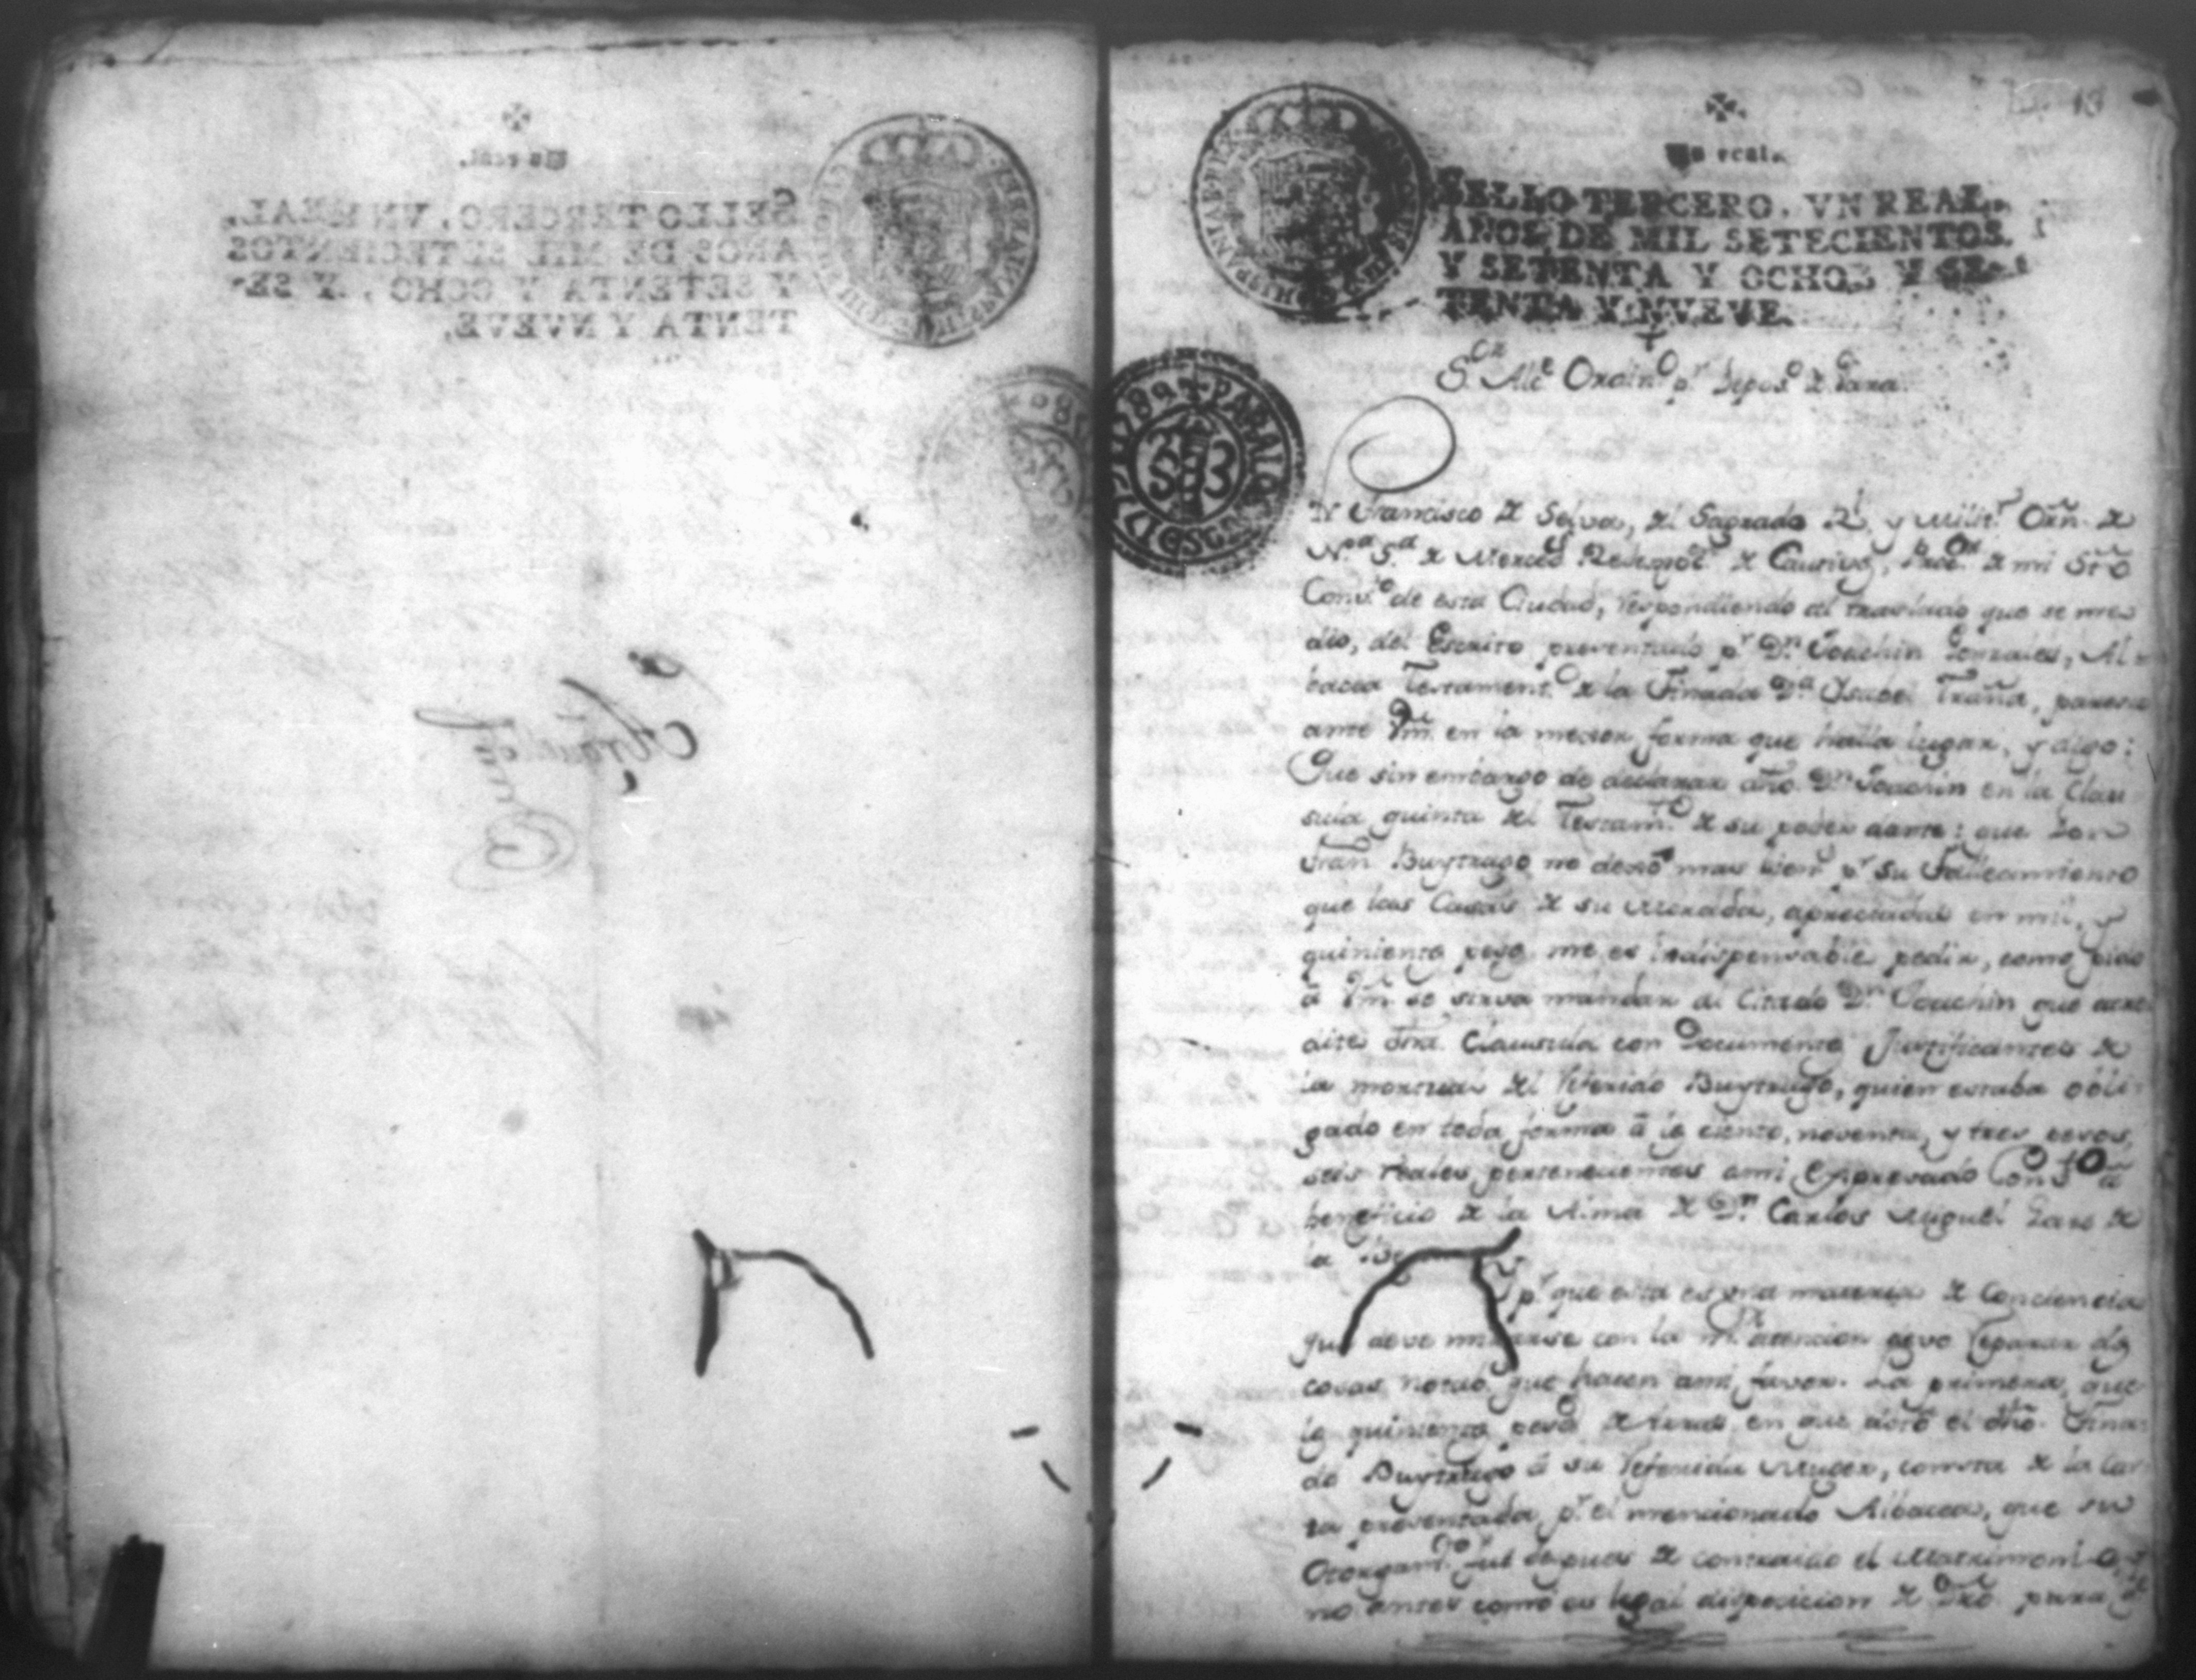 Un real.
SELLO TERCERO, VN REAL,
AÑOS DE MIL SETECIENTOS
Y SETENTA Y OCHO, Y SE-
TENTA Y NVEVE.
Un real.
SELLO TERCERO, VN REAL,
AÑOS DE MIL SETECIENTOS
Y SETENTA Y OCHO, Y SE-
TENTA Y NVEVE.
S.or Alc.e Ordin.o p.r
Fr. Francisco de Selva, del Sagrado R.l y Milit.r Orñ. de
N.ra S.ra de Merced Redempc.n de Cautivos, Proc.or de mi
Conv.to de esta Ciudad, respondiendo al traslado que se me
dio, del Escrito presentado p.r D.n Joachin Gonzales, Al-
bacea Testament.o de la Finada D.a Ysabel Traña, paresco
ante Vm̃. en la mejor forma que halla lugar, y digo:
Que sin embargo de declarar dño. D.n Joachin en la Clau
sula quinta del Testam.to de su poder dante: que Don
Fran. Buytrago no dexó mas bien p.r su Fallecimiento
que las Casas de su Morada, apreciadas en mil, y
quinientos pesos me es indispensable pedir, como pido
á Vm̃. se sirva mandar al citado D.n Joachin que acre
dite dña. Clausula con Documentos Justificantes de
la mortual del referido Buytrago, quien estaba obli-
gado en toda forma á los ciento, noventa, y tres pesos,
seis reales pertenecientes ami expresado Conv.to á
beneficio de la Alma de D.n Carlos Miguel Dias de
la
p.r que esta es una materia de Conciencia
que deve mirarse con la m.or atencion devo reparar dos
cosas notad que hacen ami favor. La primera, que
los quinientos pesos de en que dotó el dño. Fina
do Buytrago á su referida Muger, consta de la Car
ta presentada p.r el mencionado Albacea, que su
Otorgam.to fue despues de contraido el Matrimonio, y
no antes como es legal disposicion de Dro. para